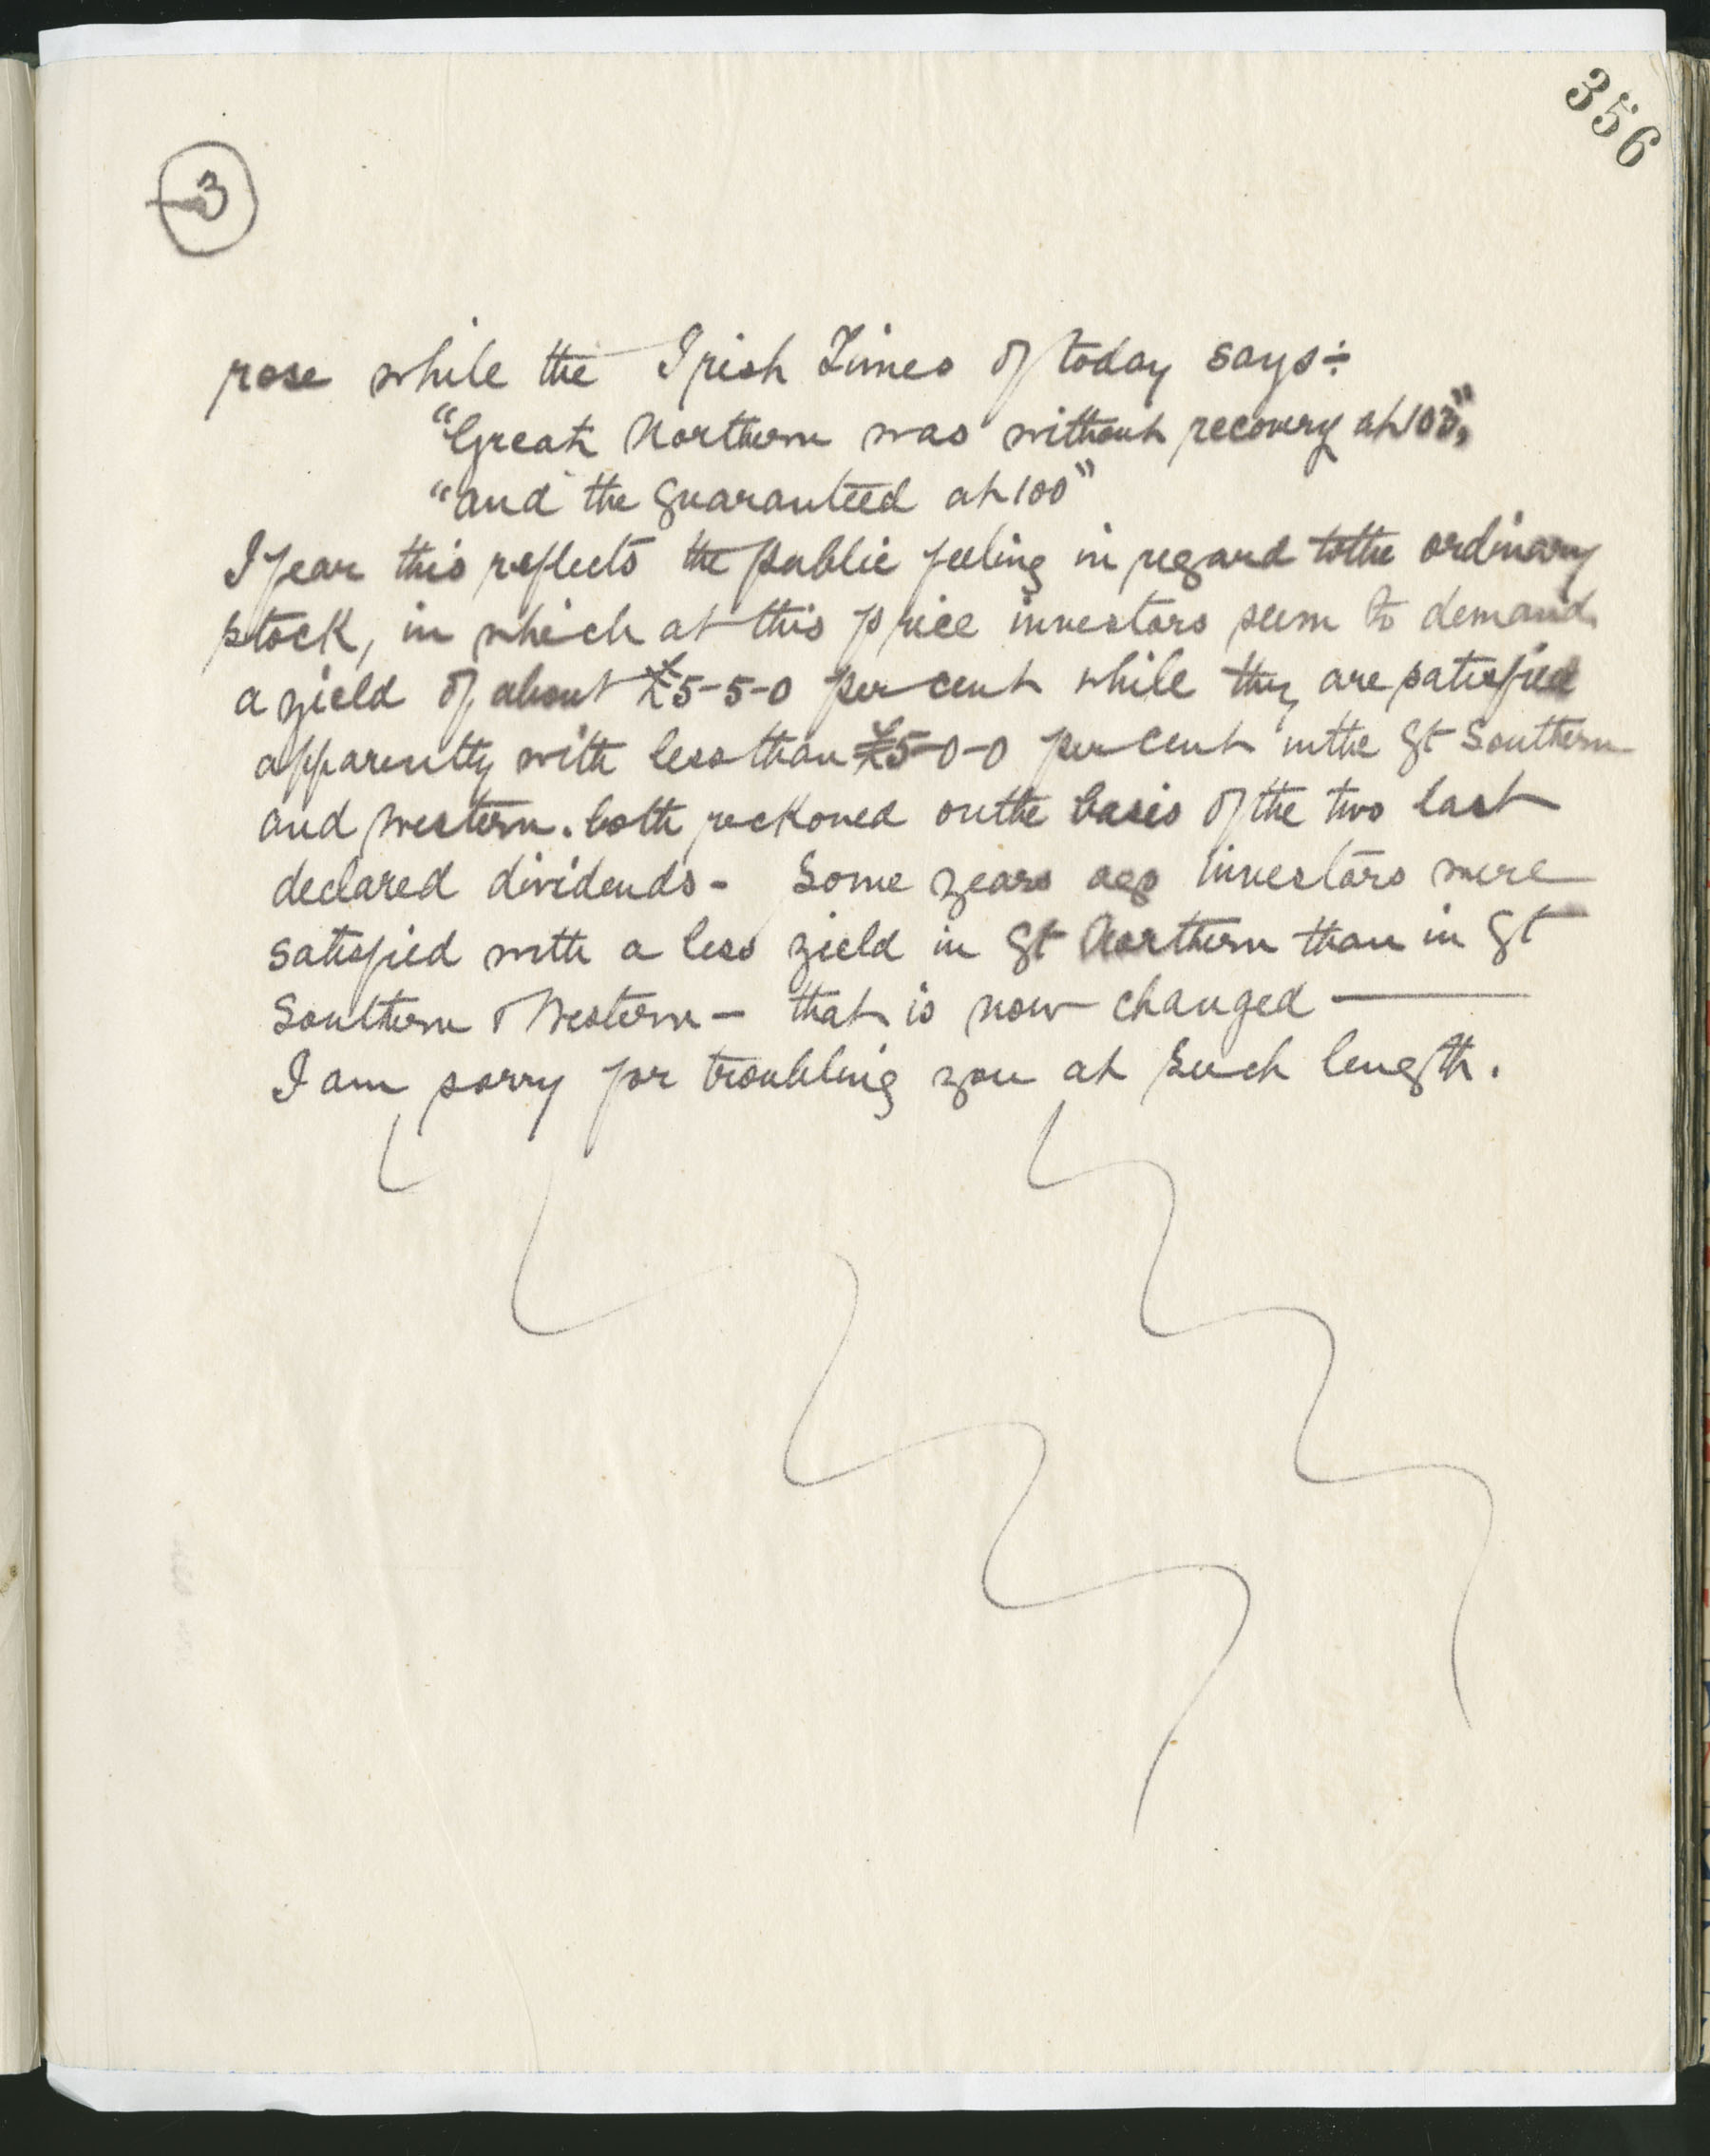 356
3
rose while the Irish Times of today says÷
"Great Northern was without recovery at 103,"
"and the guaranteed at 100"
I fear this reflects the public feeling in regard to the ordinary
stock, in which at this price investors seem to demand
a yield of about £5-5-0 per cent while they are satisfied
apparently with less than £5-0-0 per cent in the Gt Southern
and Western. both reckoned on the basis of the two last
declared dividends - Some years ago investors were
satisfied with a less yield in Gt Northern than in Gt
Southern & Western - that is now changed —
I am sorry for troubling you at such length.